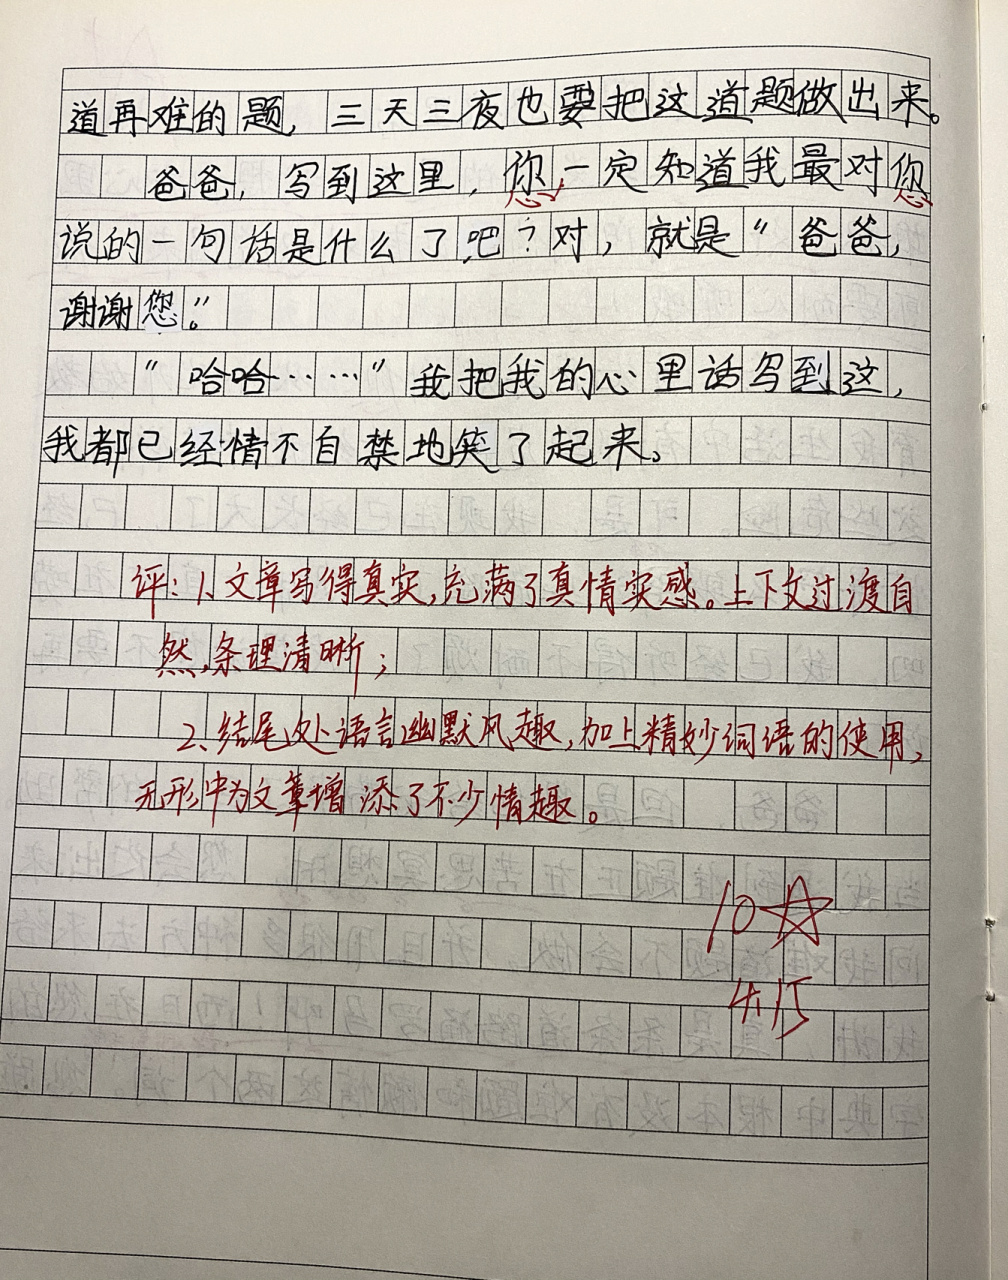 道再难的题，三天三夜也要把这道题做出来。
爸爸，写到这里，您一定知道我最对您
说的一句话是什么了吧？对，就是“爸爸，
谢谢您。”
“哈哈……”我把我的心里话写到这，
我都已经情不自禁地笑了起来。
评：1、文章写得真实，充满了真情实感。上下文过渡自
然，条理清晰；
2、结尾处语言幽默风趣，加上精妙词语的使用，
无形中为文章增添了不少情趣。
10☆
4.15